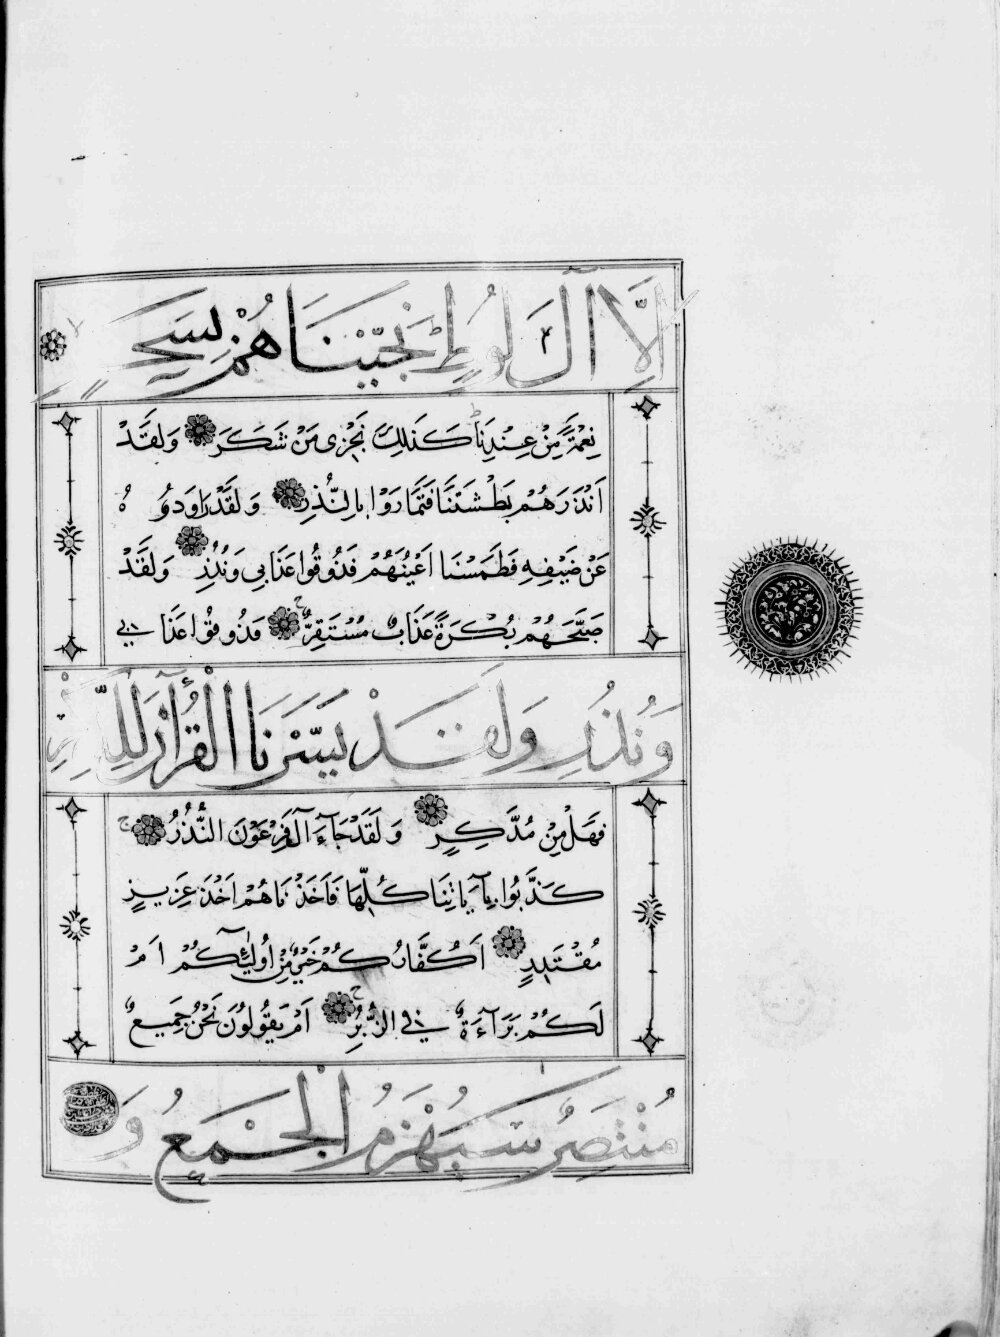 اِلَّا آلَ لُوطٍ نَجَّيْنَاهُمْ بِسَحَرٍ
نِعْمَةً مِنْ عِنْدِنَا كَذَلِكَ نَجْزِى مَنْ شَكَرَ وَلَقَدْ
اَنْذَرَهُمْ بَطْشَتَنَا فَتَمَارَوْا بِالنُّذُرِ وَلَقَدْ رَاوَدُوُهُ
عَنْ ضَيْفِهِ فَطَمَسْنَا اَعْيُنَهُمْ فَذُوقُوا عَذَابِى وَنُذُرِ وَلَقَدْ
صَبَّحَهُمْ بُكْرَةً عَذَابٌ مُسْتَقِرٌّ فَذُوقُوا عَذَابِى
وَنُذُرِ وَلَقَدْ يَسَّرْنَا الْقُرْآنَ لِلذِّكْرِ
فَهَلْ مِنْ مُدَّكِرٍ وَلَقَدْ جَاءَ آلَ فِرْعَوْنَ النُّذُرُ
كَذَّبُوا بِآيَاتِنَا كُلِّهَا فَاَخَذْنَاهُمْ اَخْذَ عَزِيزٍ
مُقْتَدِرٍ اَكُفَّارُكُمْ خَيْرٌ مِنْ اُولٰئِكُمْ اَمْ
لَكُمْ بَرَآءَةٌ فِى الزُّبُرِ اَمْ يَقُولُونَ نَحْنُ جَمِيعٌ
مُنْتَصِرٌ سَيُهْزَمُ الْجَمْعُ وَ